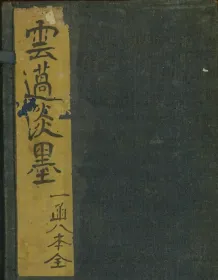 雲薖淡墨
一函八本全